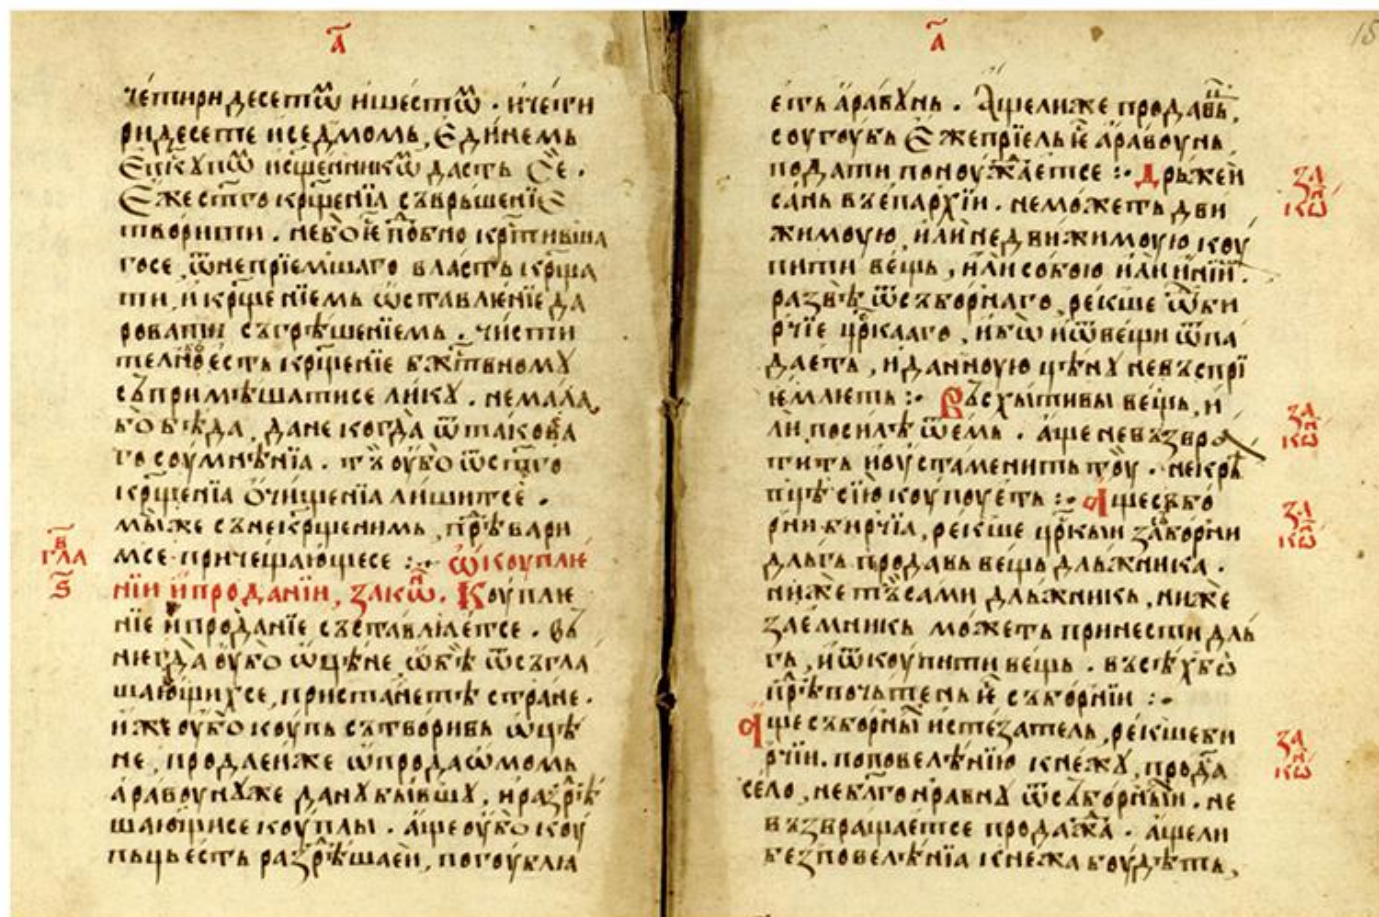 а҃
четиридесетѡⷨ и шестѡⷨ . и чети
ридесете и седмомь , единемь
Еже ст҃го кр҃щенїа съврьшенїе
творити . не бо їе
госе , ѿ не прїемшаго власть кр҃ща
ти , и кр҃щенїемь ѡставлюнїе да
ровати съгрѣшенїемь . чисти
телно есть кр҃щенїе бжⷭ҇твномꙋ
съпримѣшатисе ликꙋ . не мала
бо бѣда , да не когда ѿ такова
го соумнѣнїа . тъ оубо ѿ ст҃го
кр҃щенїа ѡчищенїа лишитсе .
мыже съ некр҃щенимь , прⷣѣвари
мсе причещающесе :· ѡ коуплю
нїи и проданїи , закѡⷩ . Коуплю
нїе и проданїе съставлꙗетсе . въ
ниегда оубо ѡ цѣне , ѡбѣ ѿ съгла
шающихсе , пристанетѣ стране .
иже оубо коупь сътворивь ѡ цѣ
не , продаеиже
аравоунꙋже данꙋ бывшꙋ , и разⷣрѣ
шающисе коуплы . аще оубо коу
пьць есть разⷣрѣшаеи , погоублꙗ
в҃ гла ѕ҃
а҃
еть арабꙋнь . Аще лиже продавь ,
соугоубь Еже прїель їе аравоунь
подати поноуждаетсе :· Дрьжеи
сань въ епархїи . не можеть дви
жимоую или недвижимоую коу
пити вещь , или собою или инїи .
развѣ ѿ съборнаго , рекше ѿ ки
рчїе цр҃кааго , ꙗко и ѿ вещи ѿпа
даеть , и данноую цѣнꙋ не въспрї
емлють :· Въсхытивы вещь , и
ли по силѣ ѿемь . аще не възвра
тить
пцѣ сїю коупоуеть :· Аще събо
рни кирчїа , рекше цр҃кы
дльгь продавь вещь дльжника .
ниже тъ сами дльжникь , ниже
заемникь можеть принести дль
гь , и ѿкоупити вещь .
прⷣѣпочьтень їе съборнїи :·
Аще съборныи истезатель , рекше ки
рчїи . по повелѣнїю кнежꙋ , прода
село , не благонравнꙋ ѿ съборнїи . не
възвращаетсе продажа . аще ли
без повелѣнїа кнежа боудеть ,
закѡⷩ
закѡⷩ
закѡⷩ
закѡⷩ